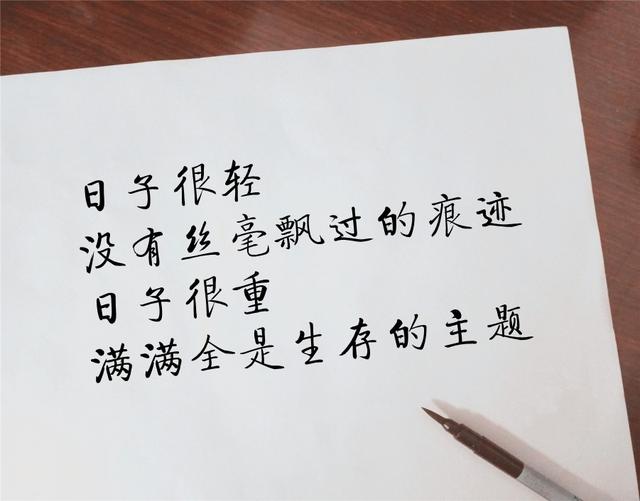 日子很轻
没有丝毫飘过的痕迹
日子很重
满满全是生存的主题